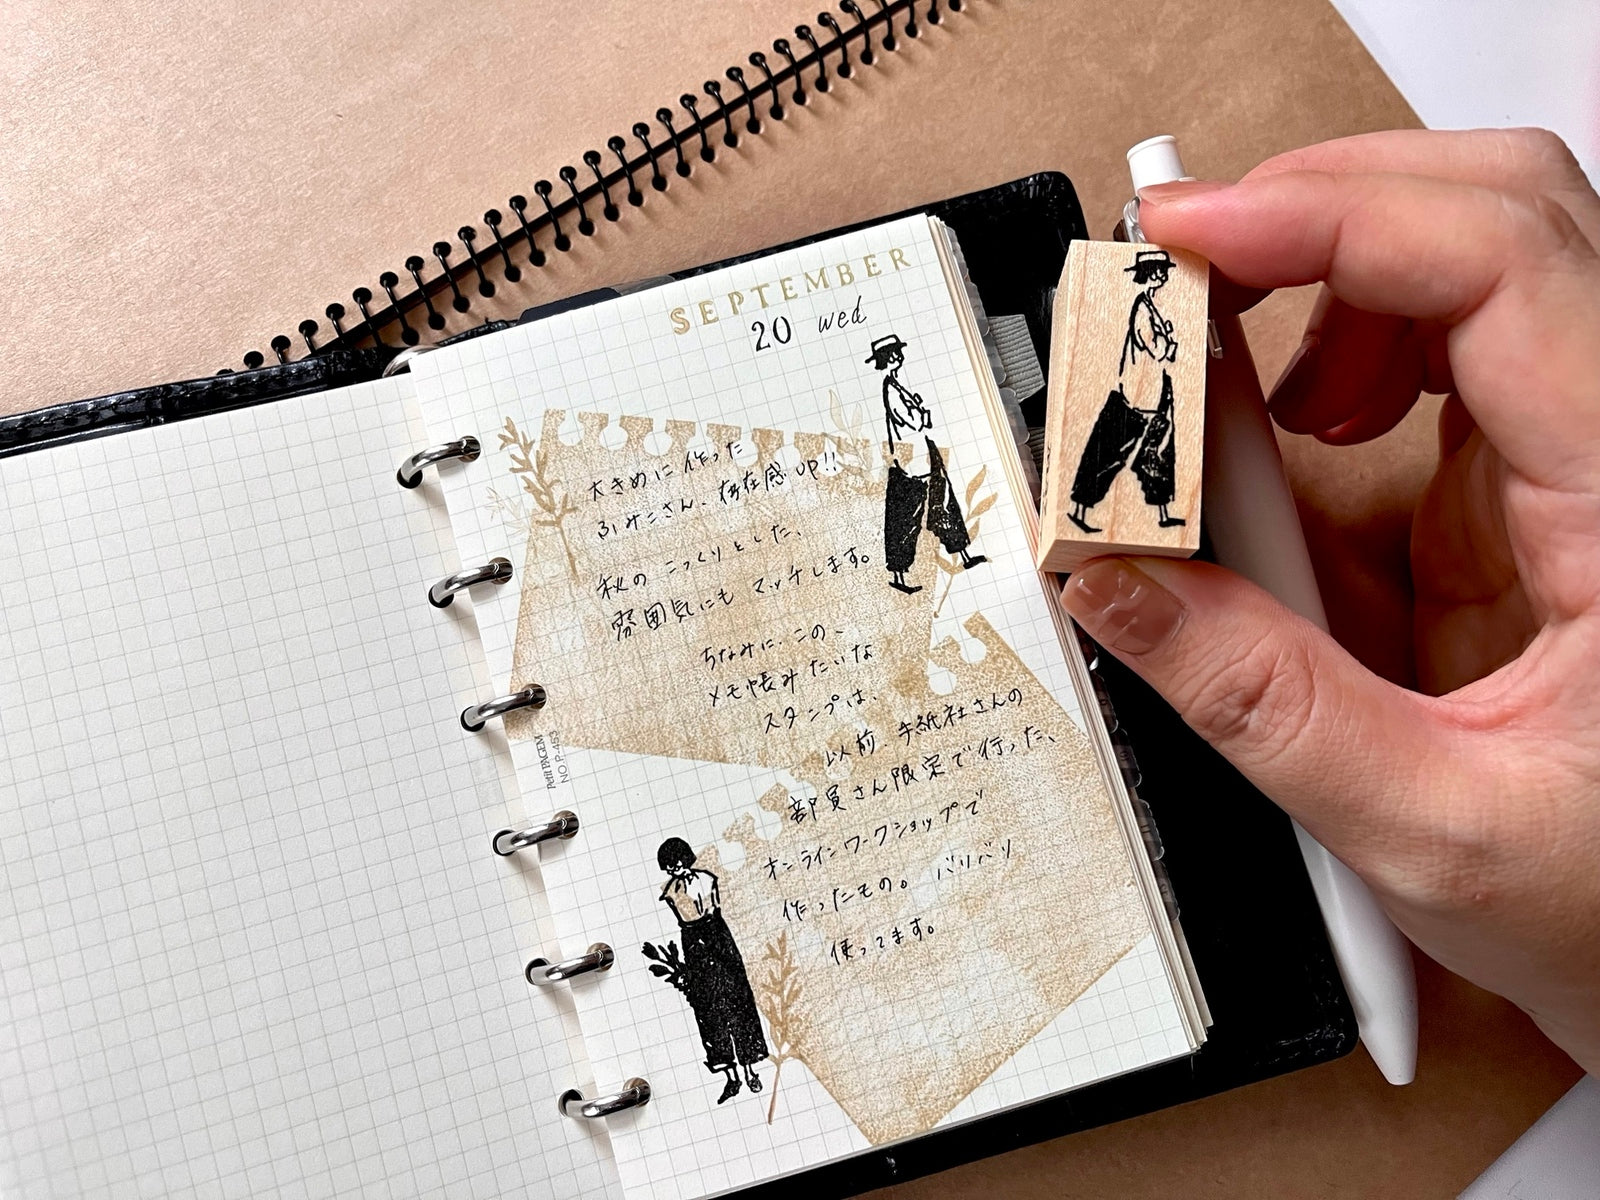 SEPTEMBER
20 wed
大きめに作った
ふみこさん、存在感UP!!
秋のこっくりとした、
雰囲気にもマッチします。
ちなみに、この、
メモ帳みたいな
スタンプは、
以前、手紙社さんの
部員さん限定で行った、
オンラインワークショップで
作ったもの。バリバリ
使ってます。
Petit PAGEM
NO.P-453